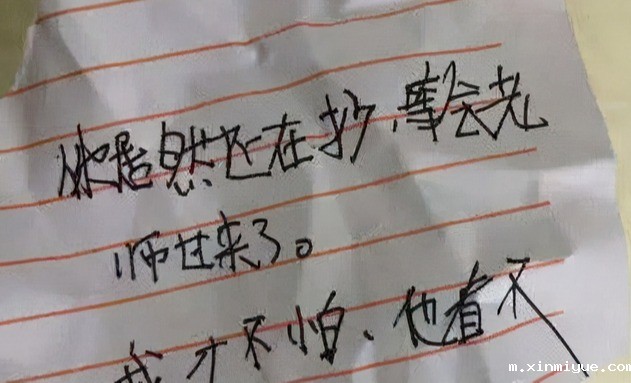 你居然还在抄,等会老
师过来了。
我才不怕、他看不
m.xinmiyue.com